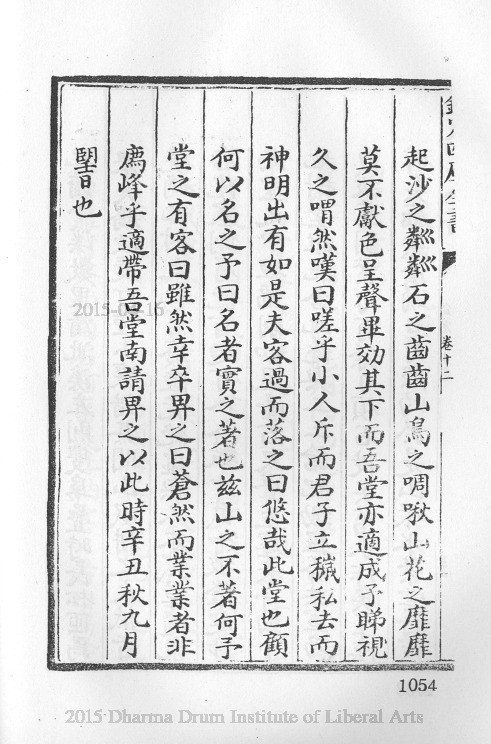 欽定四庫全書
卷十二
起沙之粼粼石之齒齒山鳥之啁啾山花之靡靡
莫不獻色呈聲畢効其下而吾堂亦適成予睇視
久之喟然嘆曰嗟乎小人斥而君子立穢私去而
神明出有如是夫客過而落之曰悠哉此堂也顧
何以名之予曰名者實之著也兹山之不著何予
堂之有客曰雖然幸卒畀之曰蒼然而業業者非
廌峰乎適帶吾堂南請畀之以此時辛丑秋九月
也
1054
2015 Dharma Drum Institute of Liberal Arts